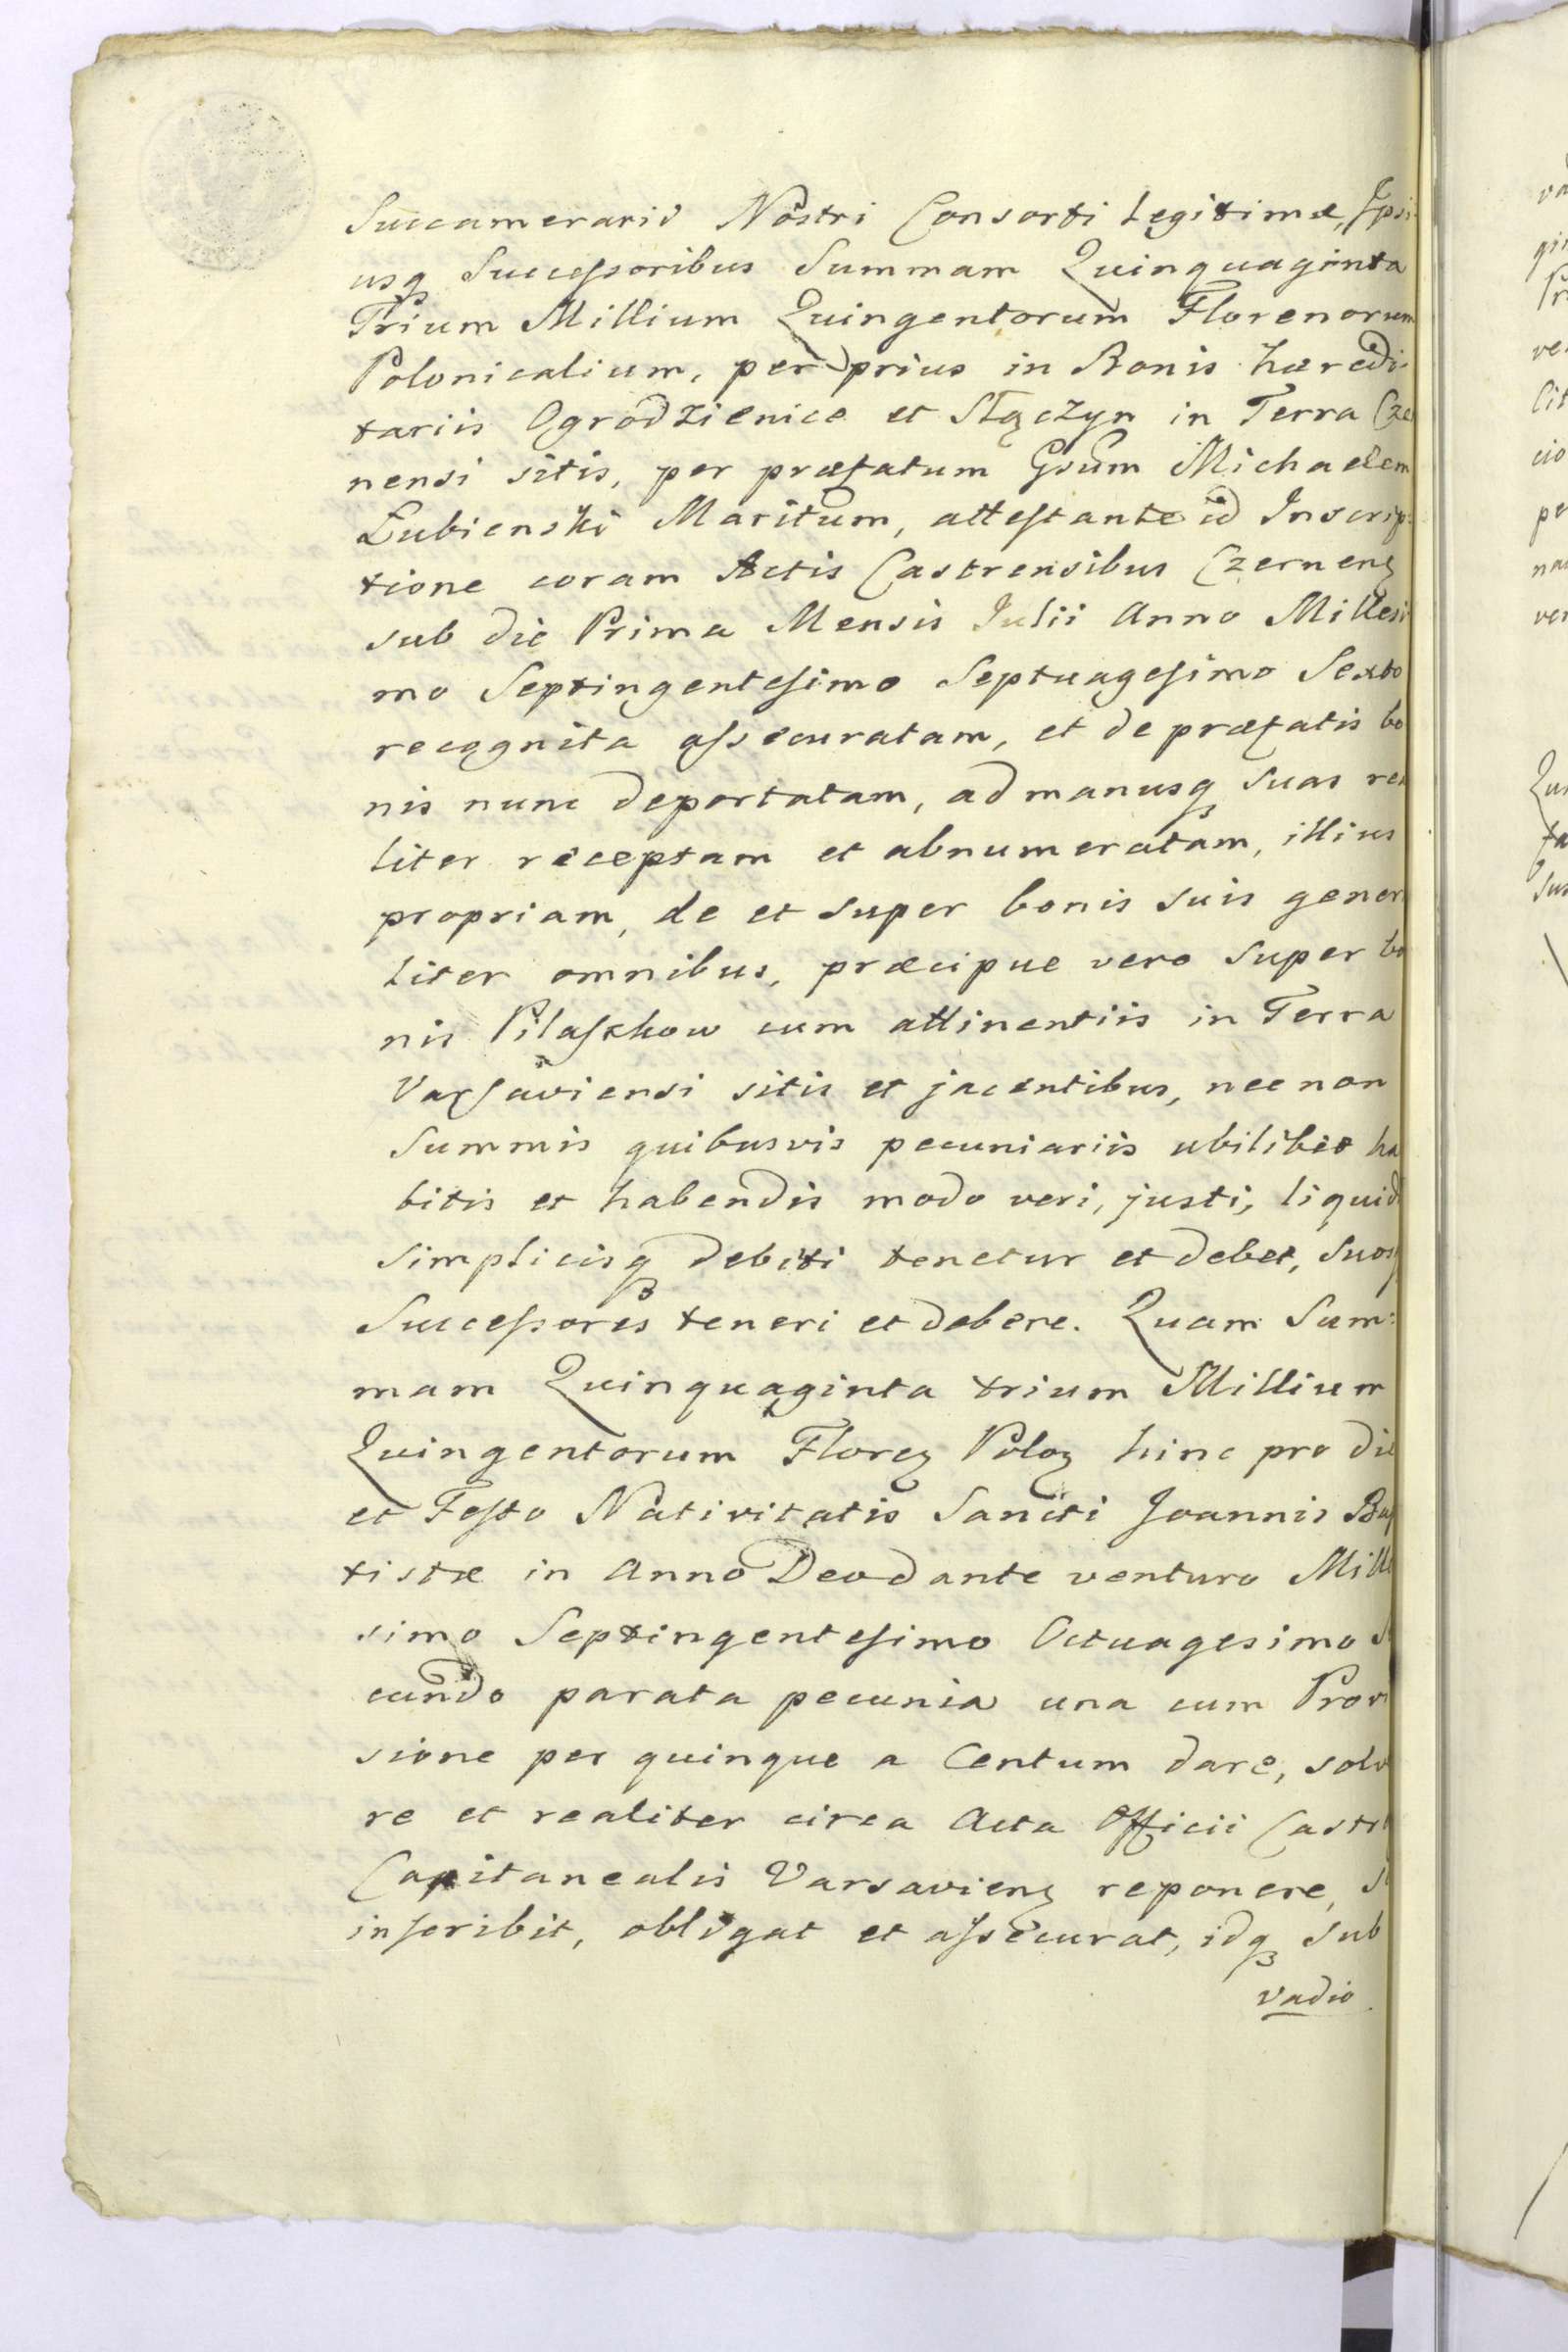 Succamerario Nostri Consorti Legitimæ, Ipsi
usq Successoribus Summam Quinquaginta
Trium Millium Quingentorum Florenorum
Polonicalium, per prius in Bonis hæredi:
tariis Ogrodzienice et Stączyn in Terra Cze
nensi sitis, per præfatum Gsum Michaelem
Łubienski Maritum, attestante id Inscrip:
tione coram Actis Castrensibus Czernen
sub die Prima Mensis Julii Anno Millesi
mo Septingentesimo Septuagesimo Sexto
recognita assecuratam, et de præfatis bo
nis nunc deportatam, ad manusq suas rea
liter receptam et abnumeratam, illius
propriam, de et super bonis suis gener
liter omnibus, præcipue vero super bo
nis Pilaszkow cum attinentiis in Terra
Varsaviensi sitis et jacentibus, nec non
Summis quibusvis pecuniariis ubilibet ha
bitis et habendis modo veri, justi, liquid
simplicisq debiti tenetur et debet, suosq
Successores teneri et debere. Quam Sum:
mam Quinquaginta trium Millium
Quingentorum Floren Polon hinc pro die
et Festo Nativitatis Sancti Joannis Bap
tistæ in Anno Deo dante venturo Mille
simo Septingentesimo Octuagesimo Se
cundo parata pecunia una cum Provi
sione per quinque a Centum dare, solve
re et realiter circa Acta Officii Castr
Capitanealis Varsavien reponere, se
inscribit, obligat et assecurat, idq sub
vadio